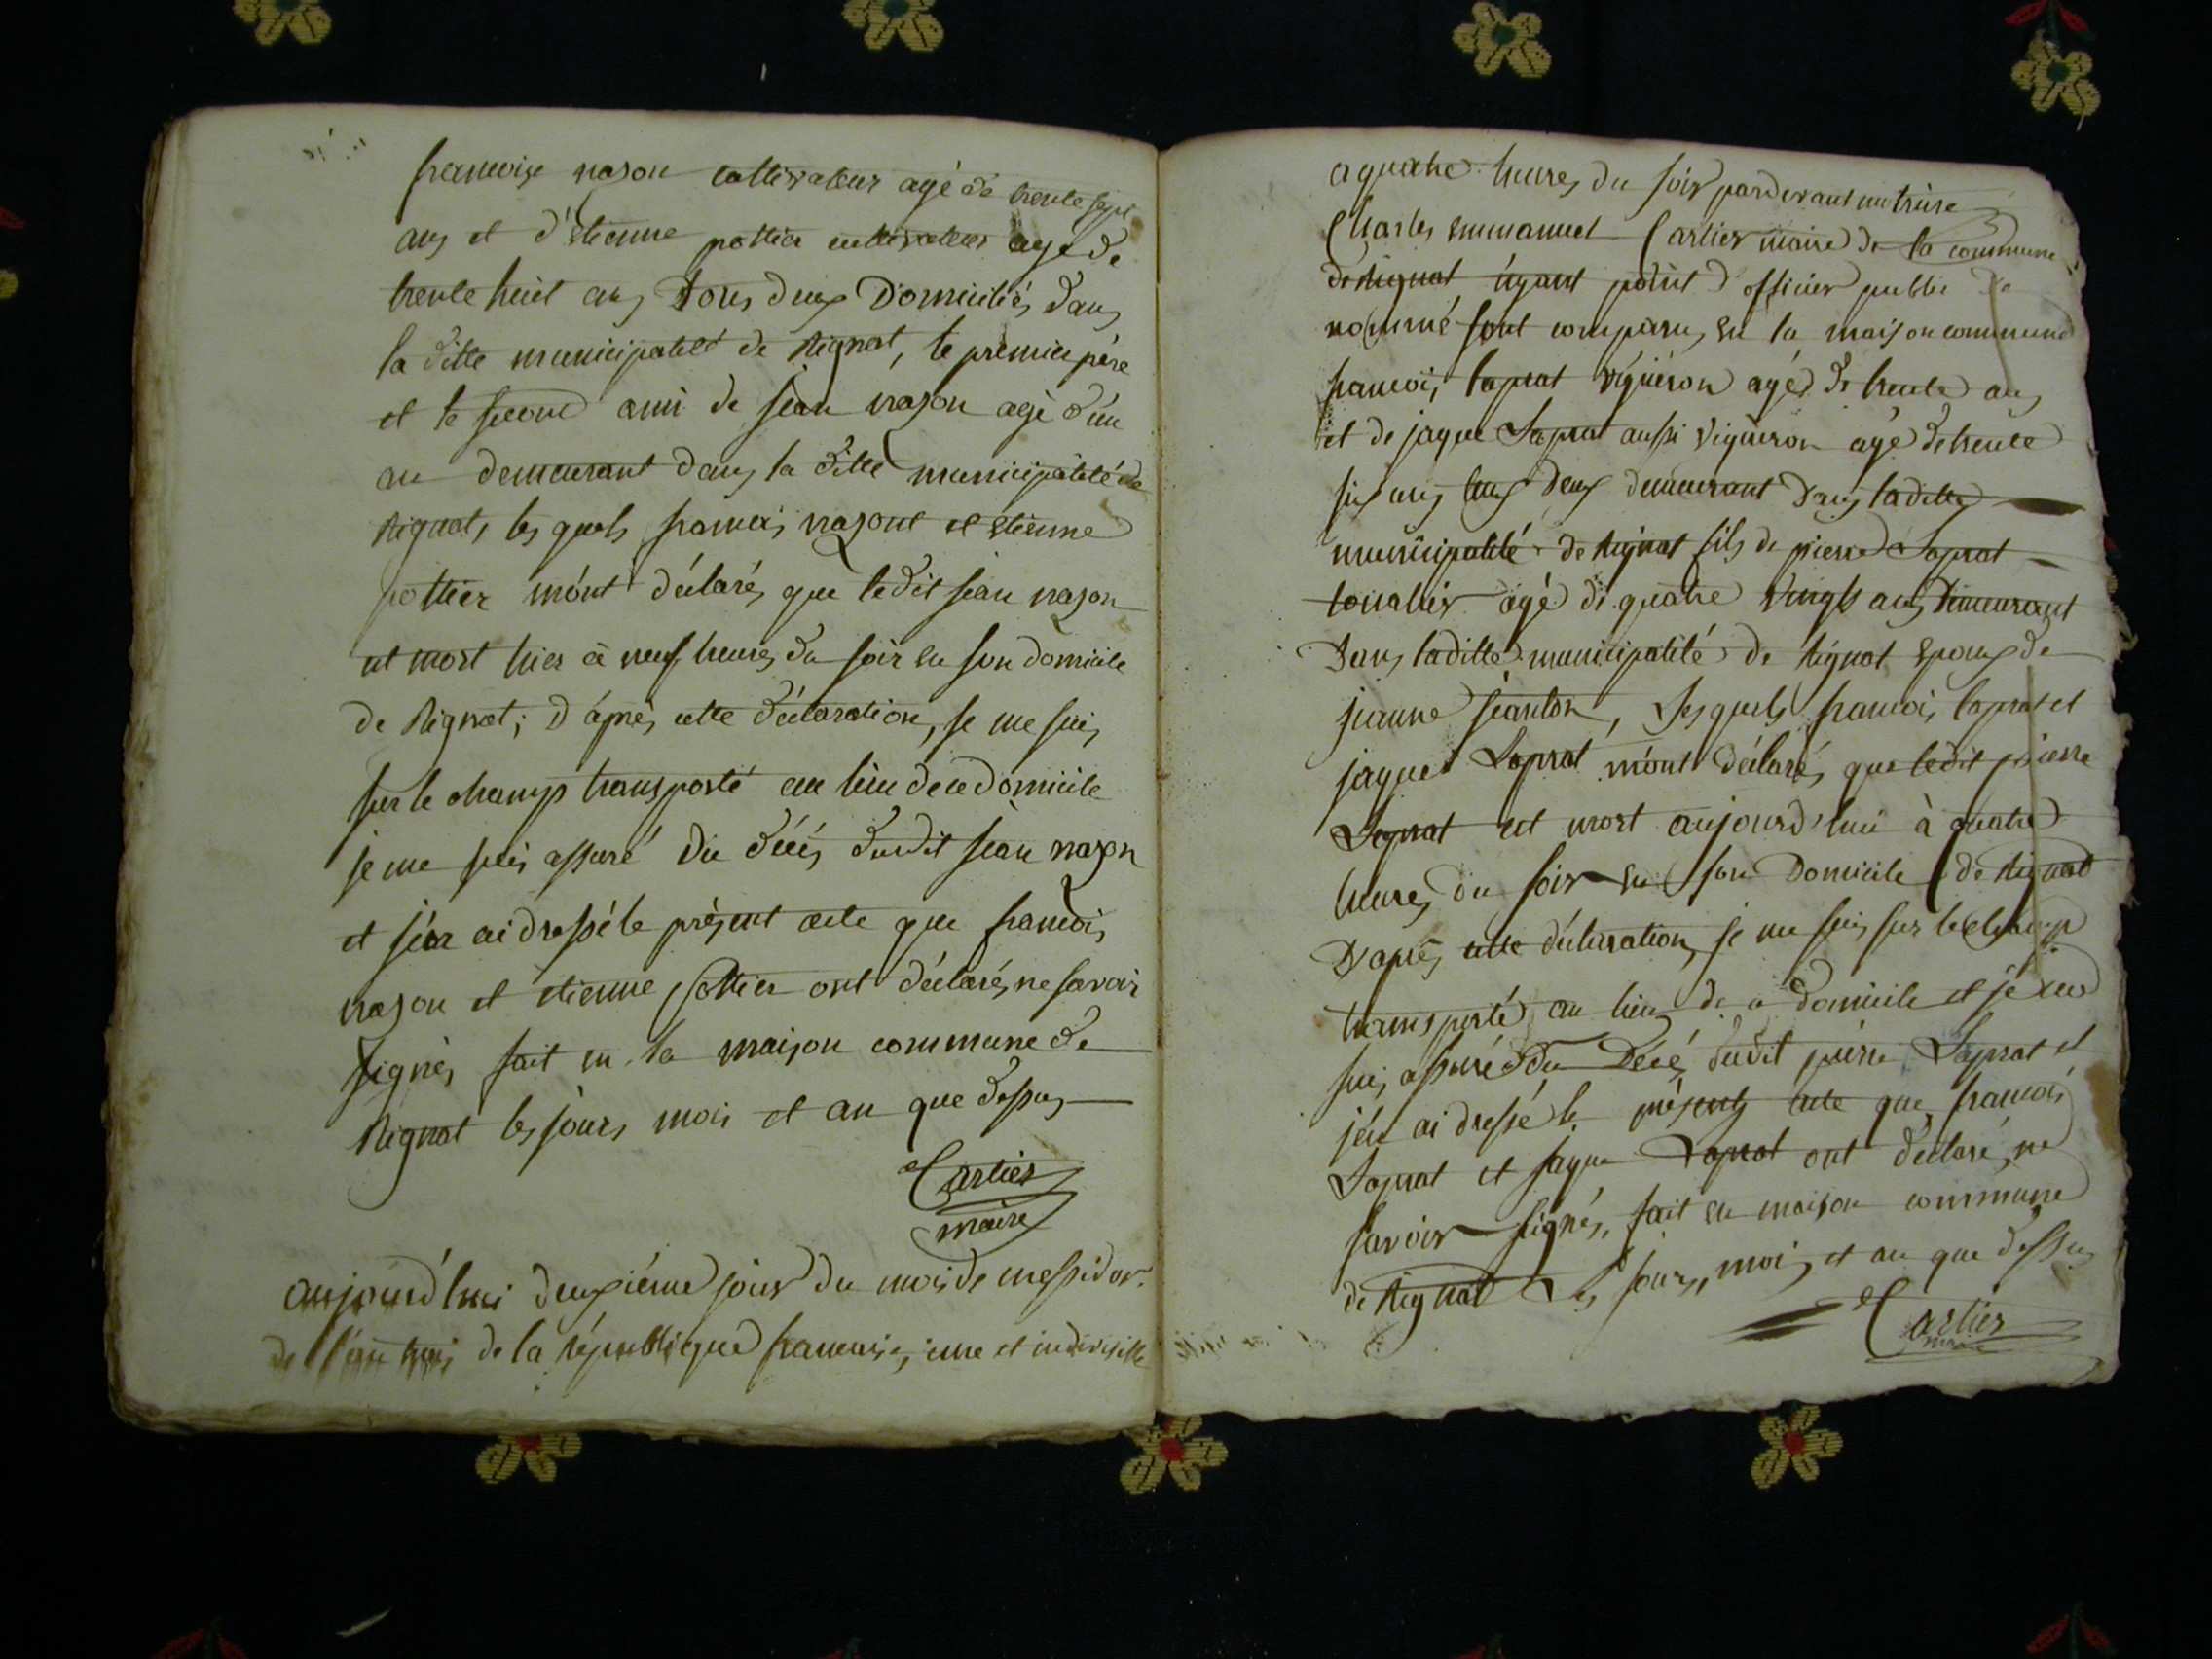 francoise nason cultivateur agé de trente sept
ans et d'étienne pottier cultivateur agé de
trente huit ans tous deux Domiciliés dans
la ditte municipalité de Rignat, le premier père
et le second ami de jean nason agé d'un
an demeurant dans la ditte municipalité de
Rignat, les quels francois nasont et etienne
pottier m'ont déclarés que ledit jean nason
est mort hier à neuf heures du soir en son domicile
de Rignat; D'aprés cette déclaration, je me suis
sur le champ transporté au lieu de ce domicile
je me suis assuré du décés dudit jean nason
et j'en ai dressé le présent acte que francois
nason et etienne pottier ont déclarés ne savoir
signés fait en la maison commune de
Rignat les jours mois et an que dessus
Cartier
maire
aujourd'hui deuxiéme jour du mois de messidor
de l'an trois de la république francaise, une et indivisible
a quatre heures du soir pardevant
Charles emmanuel Cartier maire de la commune
de Rignat ayant point d'officier public de
nommé sont comparus en la maison commune
francois laprat vigneron agé de trente ans
et de jaque Laprat aussi vigneron agé de trente
six ans tous deux demeurant dans laditte
municipalité de Rignat fils de pierre Laprat
agé de quatre vingts ans demeurant
dans laditte municipalité de Rignat epoux de
jeanne jeanton, Lesquels francois laprat et
jaques Laprat m'ont déclarés que ledit pierre
Laprat est mort aujourd'hui à quatre
heures du soir en son Domicile de Rignat
D'aprés cette déclaration, je me suis sur le champ
transporté au lieu de ce domicile et je me
suis assuré du Décé dudit pierre Laprat et
j'en ai dressé le présent acte que francois
Laprat et jaque Laprat ont déclaré ne
savoir signés, fait en maison commune
de Rignat Les jours, mois et an que dessus
Cartier
maire